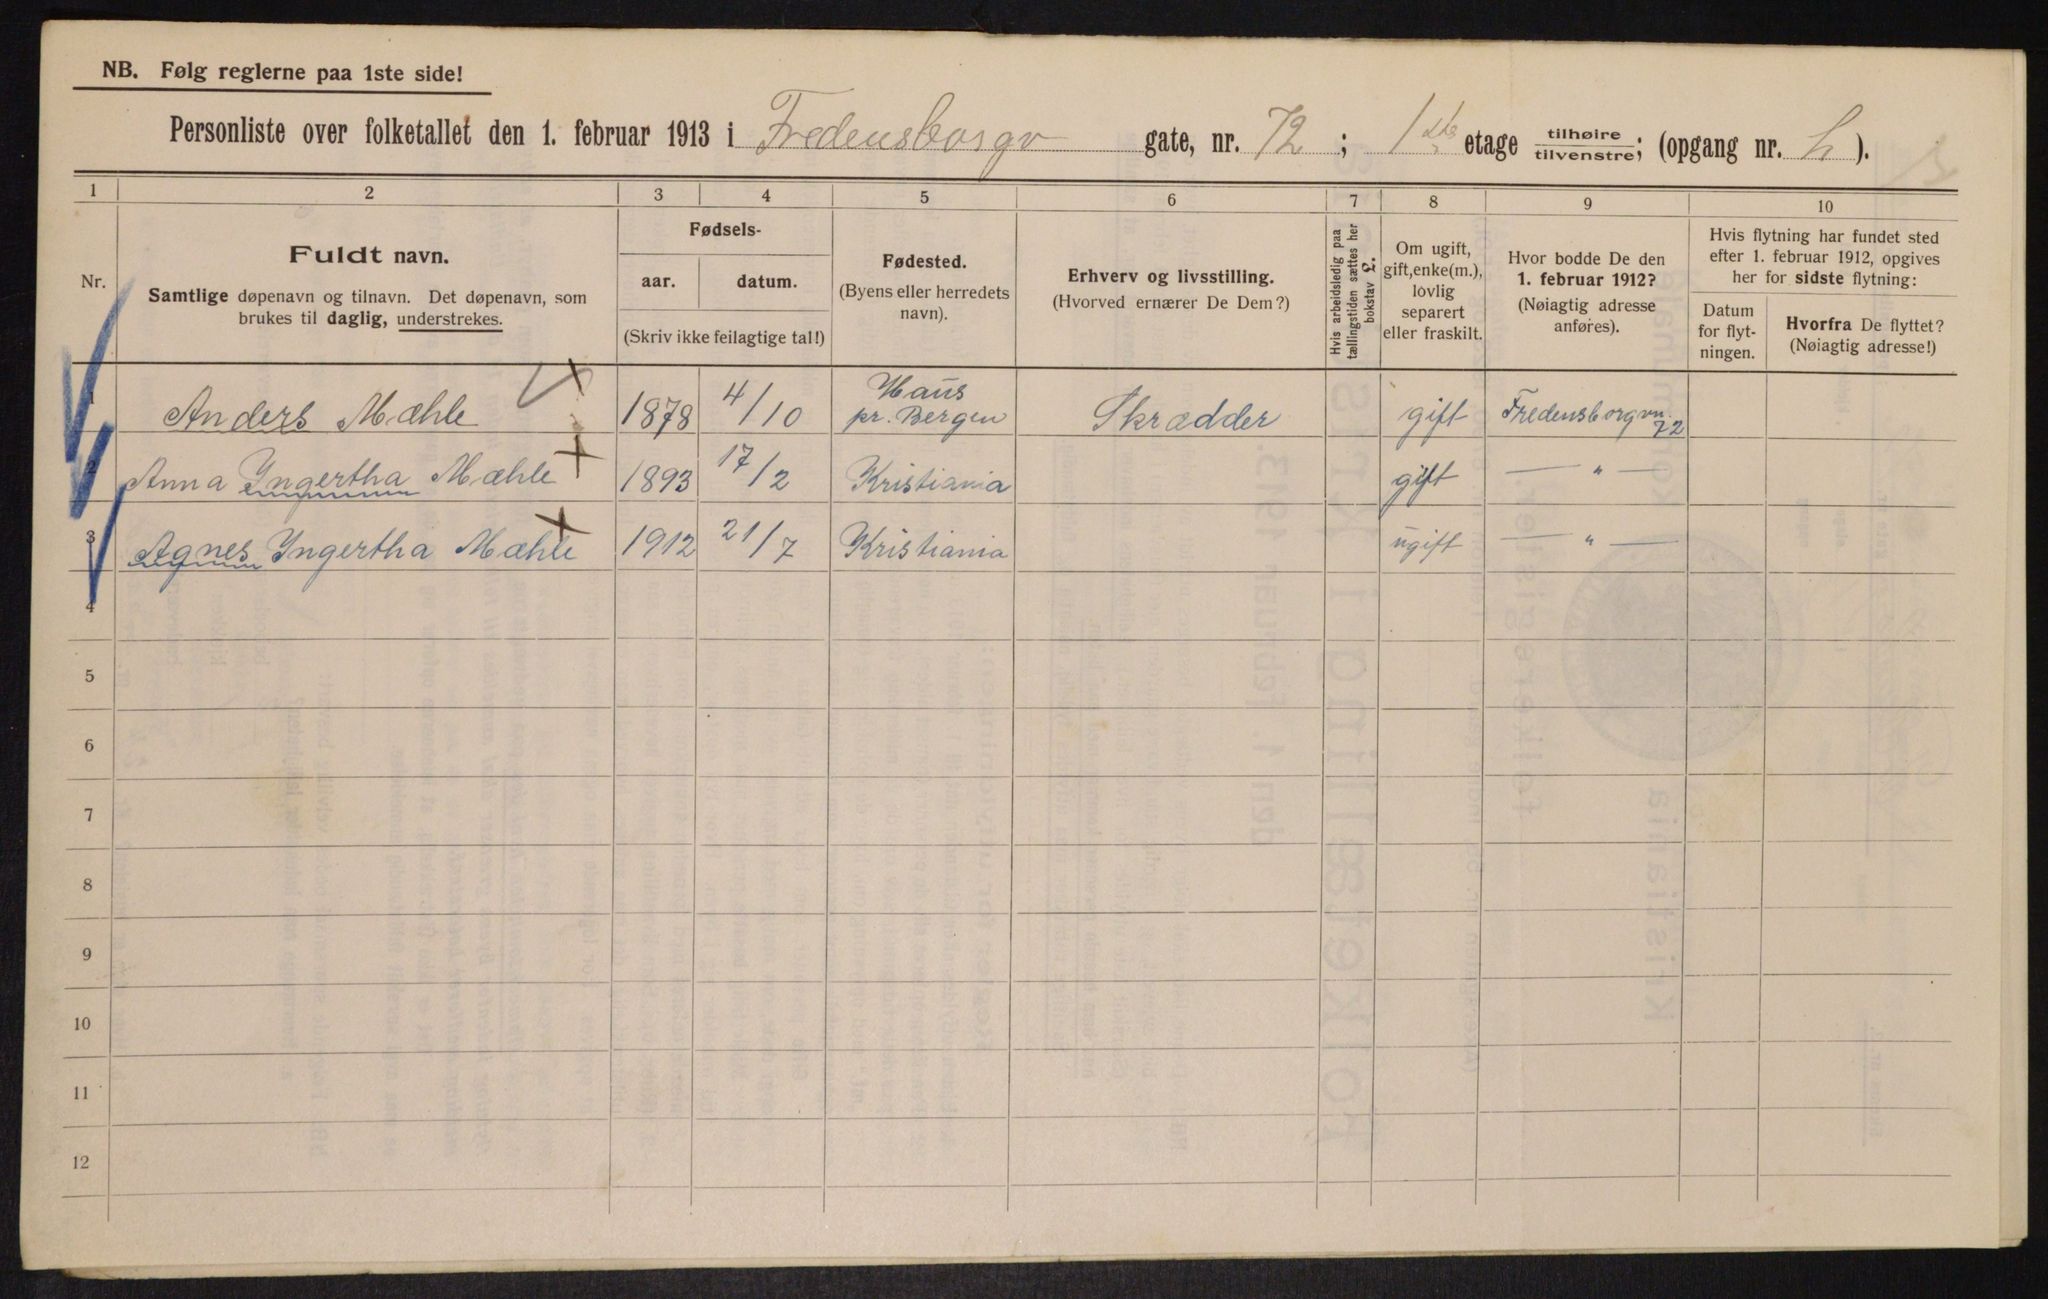 NB. Følg reglerne paa 1ste side!
Personliste over folketallet den 1. februar 1913 i Fredensborgv gate, nr. 72 ; 1ste etage tilhøire/tilvenstre; (opgang nr. ).
1 2 3 4 5 6 7 8 9 10
Nr.
Fuldt navn.
Samtlige døpenavn og tilnavn. Det døpenavn, som
brukes til daglig, understrekes.
Fødsels-
aar. datum.
(Skriv ikke feilagtige tal!)
Fødested.
(Byens eller herredets
navn).
Erhverv og livsstilling.
(Hvorved ernærer De Dem?)
Hvis arbeidsledig paa
tællingstiden sættes her
bokstav £.
Om ugift,
gift, enke(m.),
lovlig
separert
eller fraskilt.
Hvor bodde De den
1. februar 1912?
(Nøiagtig adresse
anføres).
Hvis flytning har fundet sted
efter 1. februar 1912, opgives
her for sidste flytning:
Datum
for flyt-
ningen.
Hvorfra De flyttet?
(Nøiagtig adresse!)
1 Anders Mæhle 1878 4/10 Haus pr. Bergen Skrædder gift Fredensborgvn. 72
2 Anna Yngertha Mæhle 1893 17/2 Kristiania gift — " —
3 Agnes Yngertha Mæhle 1912 21/7 Kristiania ugift — " —
4
5
6
7
8
9
10
11
12